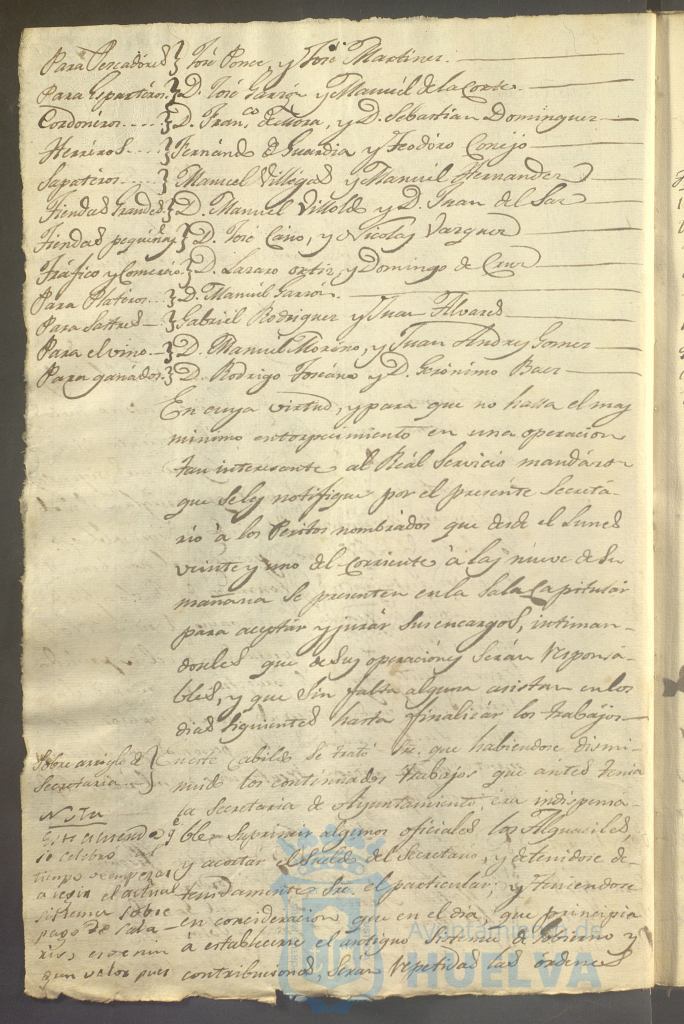 Para Pescadores } José Ponce, y José Martinez.
Para Esparteros } D. José Garrón y Manuel de la Corte.
Cordonéros } D. Franco. de Mora, y D. Sebastian Dominguez
Herréros } Fernándo de Guardia y Teodóro Conejo
Sapatéros } Manuel Villégas y Manuel Hernandez
Tiendas grandes } D. Manuel y D. Juan del Saz
Tiendas pequeñas } D. José Cano, y Nicolas Vazquez
Tráfico y Comercio } D. Lazaro ortiz, y Domingo de Cruz
Para Platéros } D. Manuel Garrón.
Para Sastres } Gabriel Rodriguez y Juan Alvares
Para el vino } D. Manuel Moréno, y Juan Andres Gomez
Para ganados } D. Rodrigo Toscano y D. Gerónimo Baez
En cuya virtud, y para que no halla el mas
minimo entorpecimiento en una operacion
tan interesante al Reál Servicio mandáron
que se les notifique por el presente Secretá-
rio á los Peritos nombrados que desde el Lunes
veinte y uno del corriente á las nueve de su
mañana se presenten en la Sala Capitulár
para aceptár y jurár sus encargos, intiman-
doseles que de sus operaciónes serán responsá-
bles, y que sin falta alguna asistan en los
dias siguientes hasta finalizár los trabajos
Sobre arreglo de Secretaria } En este Cabildo se trató que habiendose dismi-
nuido los continuados trabajos que antes tenia
la Secretaria de Ayuntamiento, era indispensa-
ble suprimir algunos oficiales los Alguaciles,
y acortar el Sueldo del Secretario, y detenidose de-
tenidamente Sre. el particular; y Teniendose
en concideracion que en el dia, que principia
á establecerse el antiguo Sistema de Govierno y
contribuciones, serán repetidas las ordenes
Nota
Este acuerdo q.e
se celebró
tiempo
a regir el actual
sistema sobre
pago de Sala-
rios, es de nin
gun valor pues
Ayuntamiento de
HUELVA